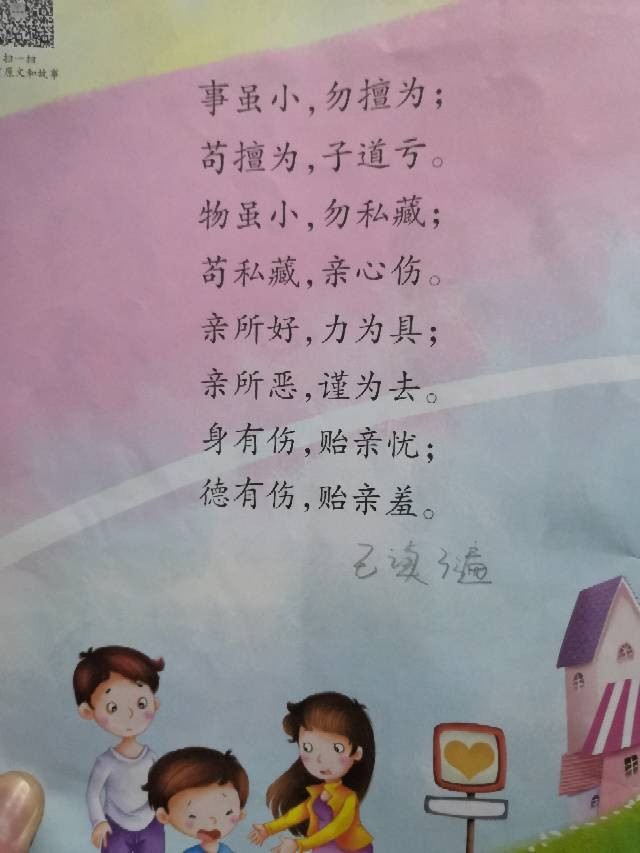 扫一扫
原文和故事
事虽小,勿擅为;
苟擅为,子道亏。
物虽小,勿私藏;
苟私藏,亲心伤。
亲所好,力为具;
亲所恶,谨为去。
身有伤,贻亲忧;
德有伤,贻亲羞。
已读 遍